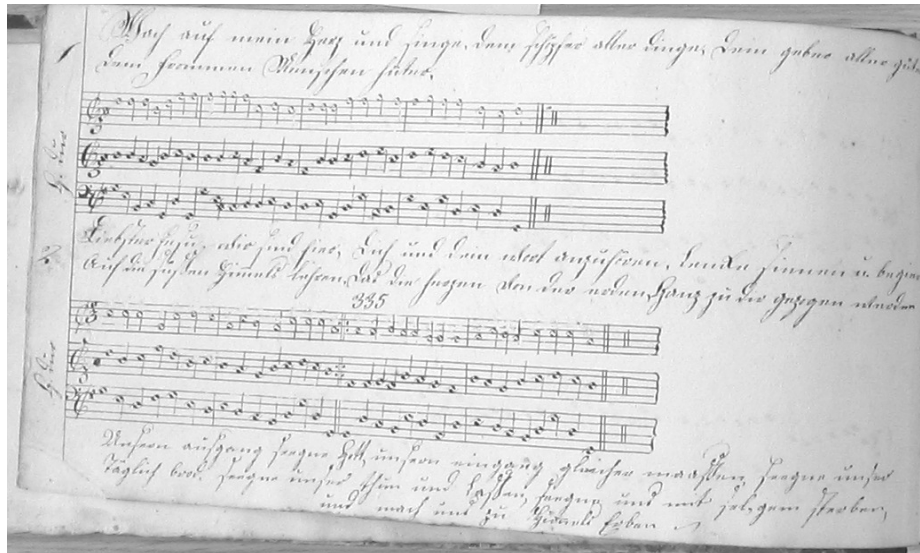 Wach auf mein Herz und singe, dem schöpfer aller dinge, Dem geber aller güter
dem frommen Menschen hüter.
G. dur
Liebster Jesu, wir sind hier, Dich und dein wort anzuhören, Lenke sinnen u. begier
Auf die süßen Himmels lehren, Das die herzen von der erden, Ganz zu dir gezogen werden
335
G. dur
Unsern ausgang seegne Gott, unsern eingang gleicher maassen, seegne unser
täglich brod, seegne unser thun und lassen, seegne uns mit seelgem sterben,
und mach uns zu Himmels Erben